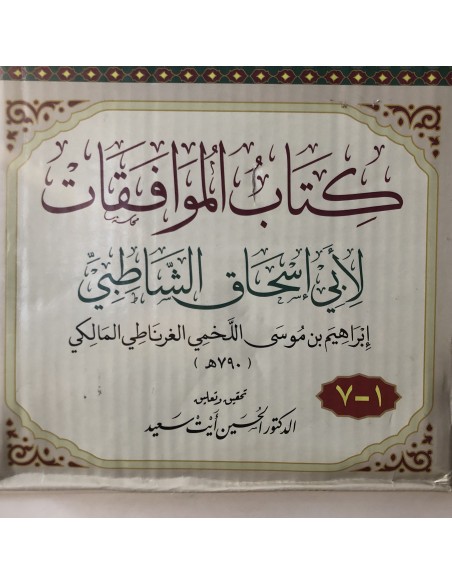 كِتَابُ المُوَافَقَات
لِأَبِي إِسْحَاق الشَّاطِبِيِّ
إِبْرَاهِيم بن مُوسَى اللَّخمِي الغرنَاطِي المَالِكِي
( ٧٩٠هـ )
تحقيق وتعليق
الدكتور الحسين أيت سعيد
١-٧